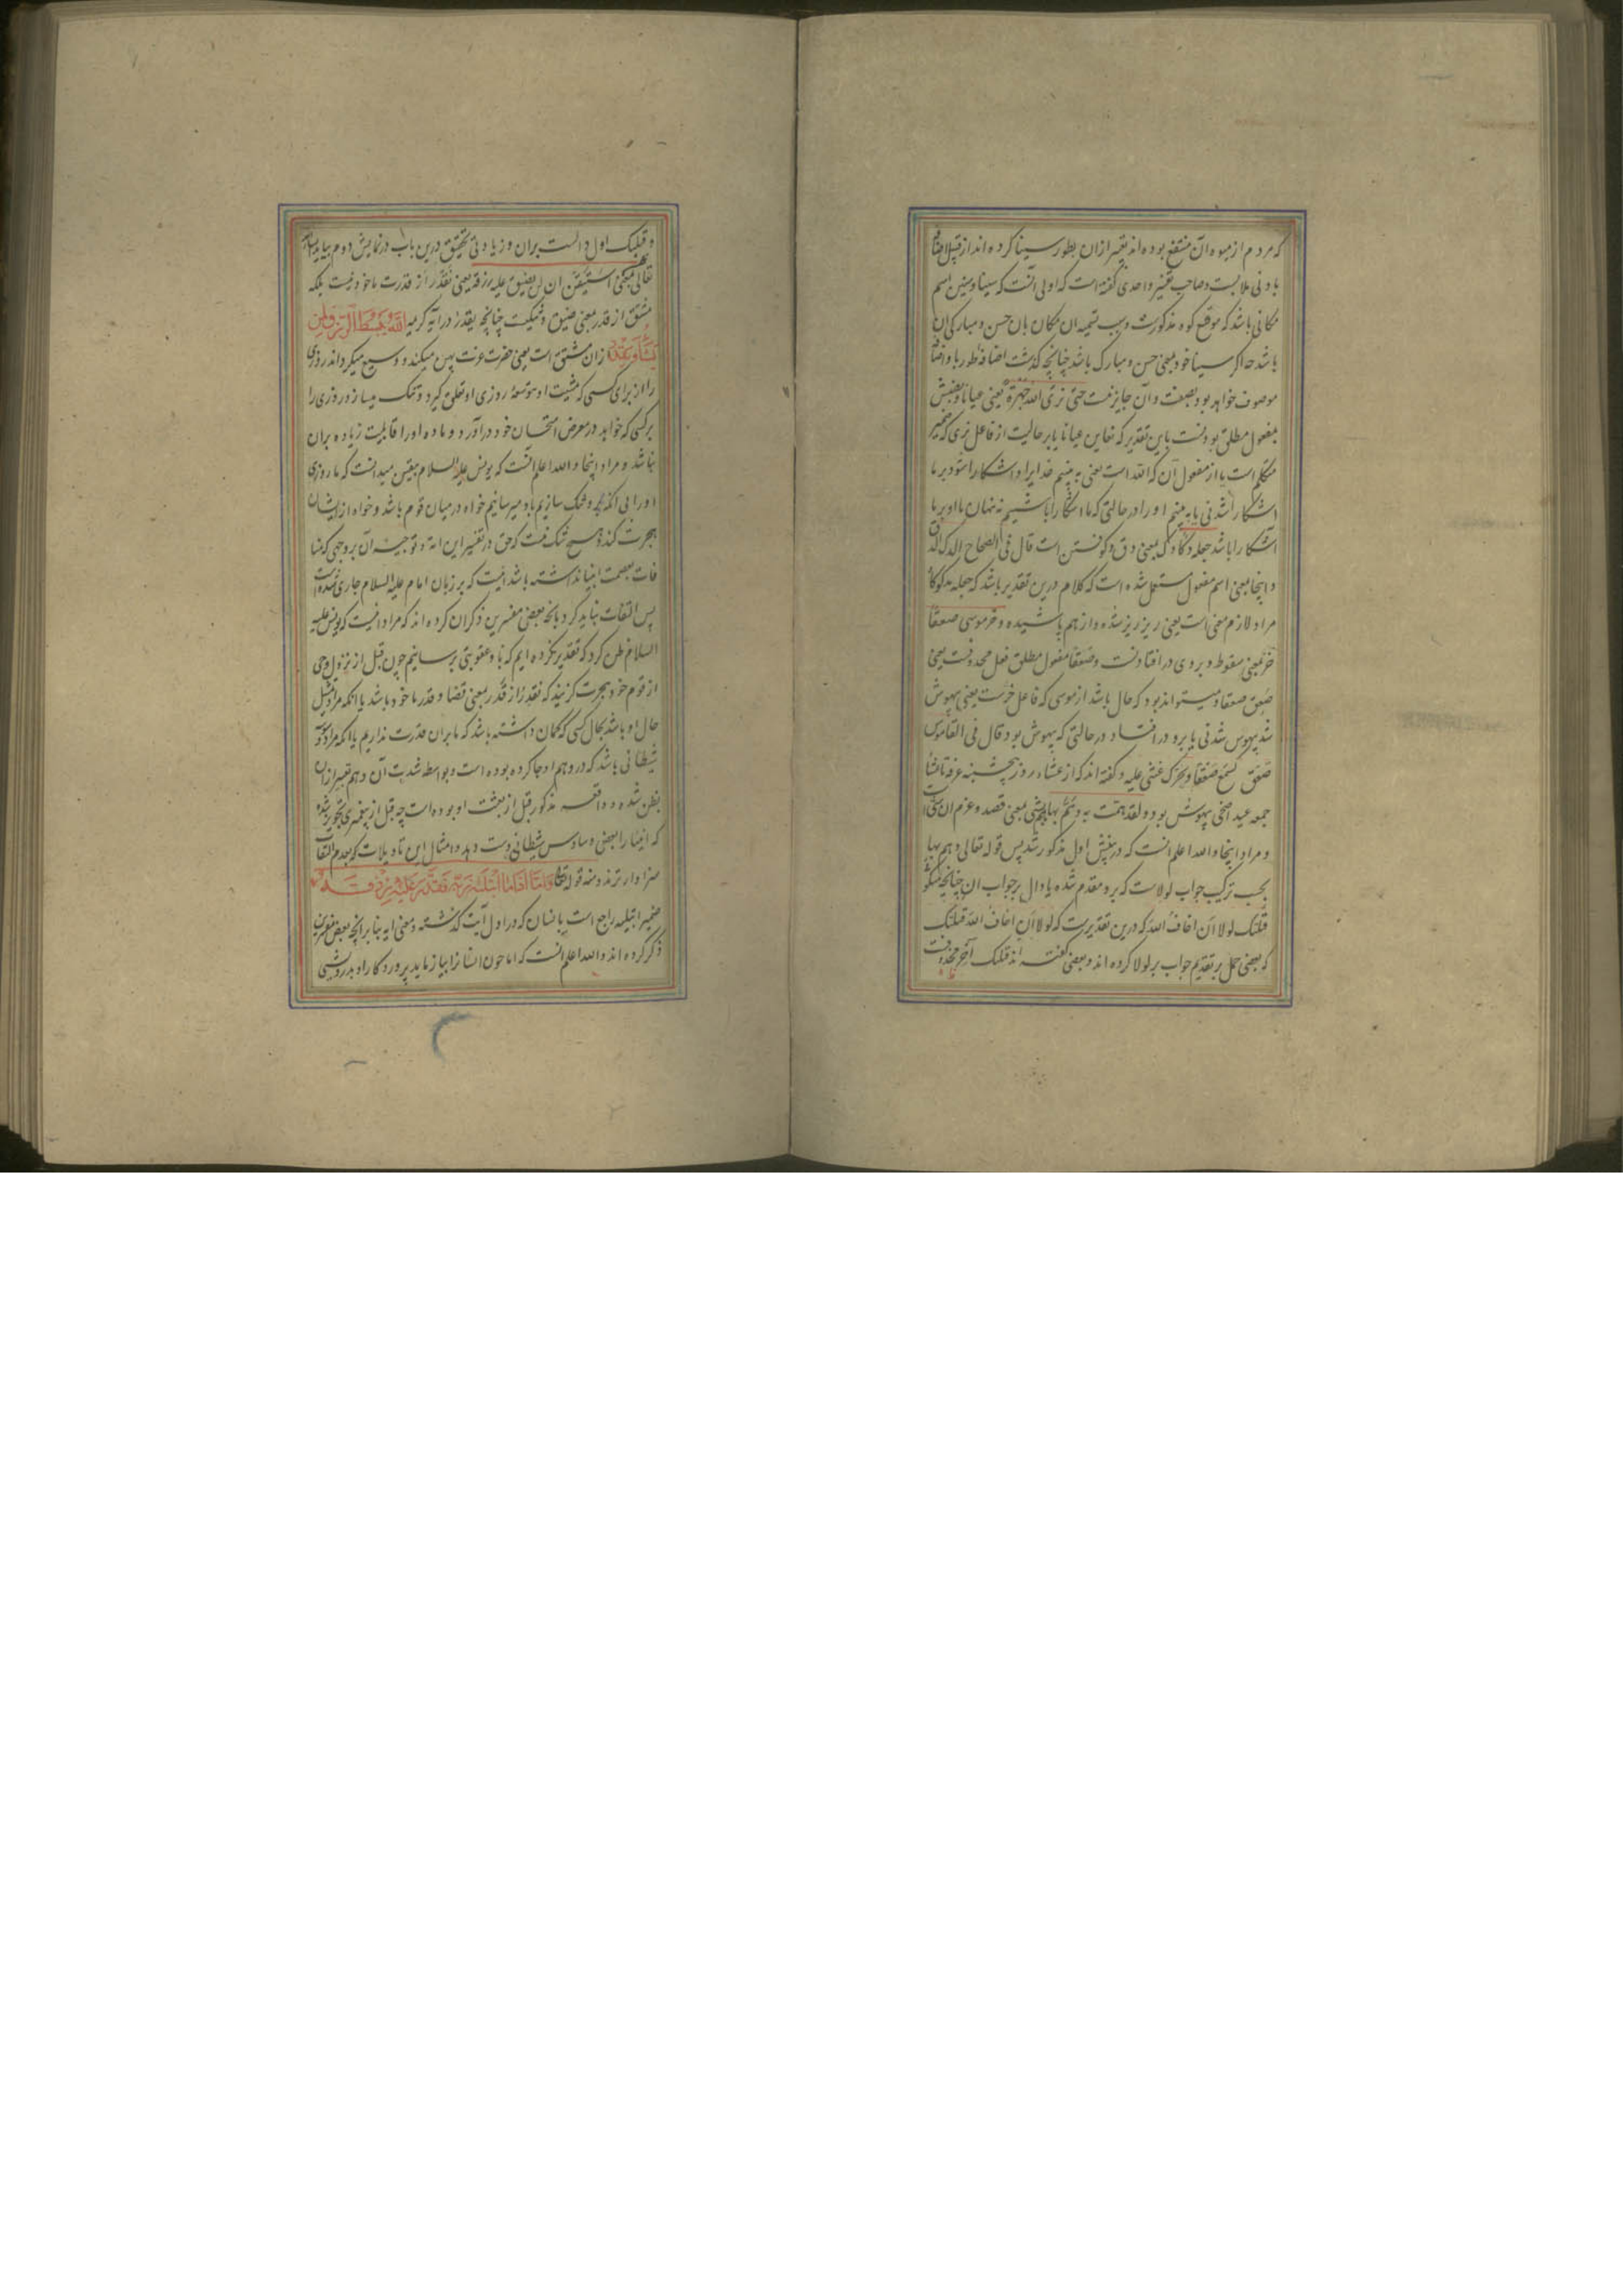 که مردم از میوه آن منتفع بوده اند تعبیر ازان بطور سینا کرده اند از قبیل اضافه
بادنی ملابست و صاحب تفسیر واحدی گفته است که اولی آنست که سینا و سینین اسم
مکانی باشد که موقع کوه مذکورست و سبب تسمیه ان مکان بان حسن و مبارکی ان
باشد چه اگر سینا خود بمعنی حسن و مبارک باشد چنانچه گذشت اضافه طور باو اضافه
موصوف خواهد بود بصفت و آن جایز نیست حتی نری الله جهرة یعنی عیانا و نصبش
بمفعول مطلق بودنست باین تقدیر که نعاین عیانا یا بر حالیت از فاعل نری که ضمیر
متکلم است یا از مفعول آن که الله است یعنی به بینیم خدایرا و اشکارا شود بر ما
اشکارا شدنی یا به بینیم او را در حالتی که ما اشکارا باشیم نه نهان یا او بر ما
آشکارا باشد جعله دکا دک بمعنی دق و کوفتن است قال فی الصحاح الدک الدق
و اینجا بمعنی اسم مفعول مستعمل شده است که کلام درین تقدیر باشد که جعله مدکوکا
مراد لازم معنی است یعنی ریز ریز شده و از هم پاشیده و خر موسی صعقا
خر بمعنی سقوط و بر وی در افتادنست و صعقا مفعول مطلق فعل محذوفست یعنی
صعق صعقا و میتواند بود که حال باشد از موسی که فاعل خرست یعنی بیهوش
شد بیهوس شدنی یا برو در افتاد در حالتی که بیهوش بود قال فی القاموس
صعق کسمع صعقا و یحرک غشی علیه و گفته اند که از عشاء روز پنجشنبه عرفه تا عشا
جمعه عید اضحی بیهوش بود و لقد همت به و هم بها هم بشی بمعنی قصد و عزم ان شی است
و مراد اینجا و الله اعلم انست که در بینش اول مذکور شد پس قوله تعالی و هم بها
بحسب ترکیب جواب لولاست که برو مقدم شده یا دال بر جواب ان چنانچه میگو
قتلتک لولا ان اخاف الله که درین تقدیرست که لولا ان اخاف الله قتلتک
که بعضی حمل بر تقدیم جواب بر لولا کرده اند و بعضی گفته اند قتلتک آخر محذوفست
و قتلتک اول دالست بران و زیادتی تحقیق درین باب در نمایش دوم بیاید
تعالی بمعنی استیقن ان لن یضیق علیه رزقه یعنی نقدر از قدرت ماخوذ نیست بلکه
مشتق از قدر بمعنی ضیق و تنگیست چنانچه یقدر در آیه کریمه الله یبسط الرزق لمن
یشاء و یقدر ازان مشتق است یعنی حضرت عزت پهن میکند و وسیع میگرداند روزی
را از برای کسی که مشیت او بتوسعه روزی او تعلق گیرد و تنک میسازد روزی را
بر کسی که خواهد در معرض امتحان خود در آورد و ماده او را قابلیت زیاده بران
نباشد و مراد اینجا و الله اعلم آنست که یونس علیه السلام بیقین میدانست که ما روزی
او را بی آنکه و تنک سازیم باو میرسانیم خواه در میان قوم باشد و خواه از ایشان
هجرت کند هیچ شک نیست که حق در تفسیر این ایه و توجیه آن بروجهی که منا
فات بعصمت انبیا نداشته باشد اینست که بر زبان امام علیه السلام جاری شده است
پس التفات نباید کرد بانچه بعضی مفسرین ذکر ان کرده اند که مراد انیست که یونس علیه
السلام ظن کرد که تقدیر نکرده ایم که باو عقوبتی برسانیم چون قبل از نزول وحی
از قوم خود هجرت گزیند که نقدر از قدر بمعنی قضا و قدر ماخوذ باشد یا انکه مراد تمثیل
حال او باشد بحال کسی که گمان داشته باشد که ما بران قدرت نداریم یا انکه مراد وسوسه
شیطانی باشد که در وهم او جا کرده بوده است و بواسطه شدت آن وهم تعبیر ازان
بظن شده و واقعه مذکور قبل از بعثت او بوده است چه قبل از پیغمبری تجویز شده
که انبیا را بعضی وساوس شیطانی دست دهد و امثال این تاویلات که بعدم التفات
سزاوار ترند و منه قوله تعالی و اما اذا ما ابتلیه ربه فقدر علیه رزقه
ضمیر ابتلیه راجع است بانسان که در اول آیت گذشته و معنی ایه بنا بر انچه بعض مفسرین
ذکر کرده اند و الله اعلم انست که اما چون انسانرا بیازماید پروردگار او بدرویشی